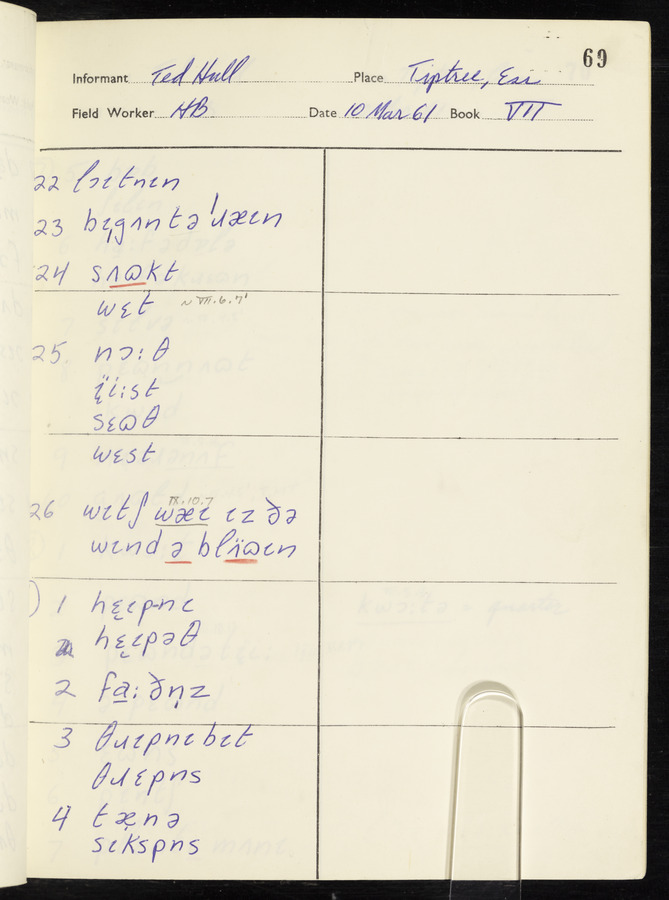 69
Informant Ted Hull Place Tiptree, Ess
Field Worker HB Date 10 Mar 61 Book VII
22 lɔɪtnɪn
23 bɪgʌntəˈɹæɪn
24 sʌɷkt
wɛt ~ VII.6.7
25. nɔ:θ
ï:st
sɛɷθ
wɛst
26 wɪtʃ wæɪ ɪz ðə
IX.10.7
wɪnd ə blïɷɪn
1 hɛ̝ɪpnɪ
hɛ̝ɪpəθ
2 fa̱:ðn̩z
3 θɹɪpnɪbɪt
θɹɛpns
4 tæ̣nə
sɪkspns